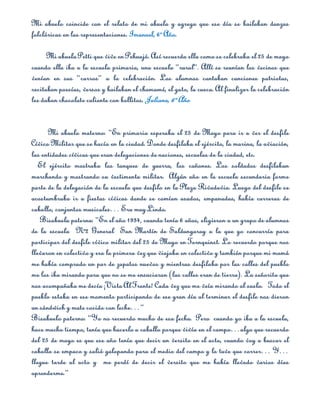 Mi abuela coincide con el relato de mi abuelo y agrega que ese día se bailaban danzas
folclóricas en las representaciones. Imanuel, 6º Año.
Mi abuela Patti que vive en Pehuajó. Así recuerda ella como se celebraba el 25 de mayo
cuando ella iba a la escuela primaria, una escuela “rural”. Allí se reunían los vecinos que
venían en sus “carros” a la celebración. Los alumnos cantaban canciones patrias,
recitaban poesías, versos y bailaban el chamamé, el gato, la cueca. Al finalizar la celebración
les daban chocolate caliente con bollitos. Juliana, 6ºAño
Mi abuela materna: “En primaria esperaba el 25 de Mayo para ir a ver el desfile
Cívico Militar que se hacía en la ciudad. Donde desfilaba el ejército, la marina, la aviación,
las entidades cívicas que eran delegaciones de naciones, escuelas de la ciudad, etc.
El ejército mostraba los tanques de guerra, los cañones. Los soldados desfilaban
marchando y mostrando su vestimenta militar. Algún año en la escuela secundaria forme
parte de la delegación de la escuela que desfilo en la Plaza Rivadavia. Luego del desfile se
acostumbraba ir a fiestas cívicas donde se comían asados, empanadas, había carreras de
caballo, conjuntos musicales… Era muy Lindo.
Bisabuela paterna: “En el año 1934, cuando tenía 8 años, eligieron a un grupo de alumnos
de la escuela Nº2 General San Martín de Saldungaray a la que yo concurría para
participar del desfile cívico militar del 25 de Mayo en Tornquinst. Lo recuerdo porque nos
llevaron en colectivo y era la primera vez que viajaba en colectivo y también porque mi mamá
me había comprado un par de zapatos nuevos y mientras desfilaba por las calles del pueblo
me los iba mirando para que no se me ensuciaran (las calles eran de tierra). La señorita que
nos acompañaba me decía ¡Vista Al Frente! Cada vez que me veía mirando al suelo. Todo el
pueblo estaba en ese momento participando de ese gran día al terminar el desfile nos dieron
un sándwich y mate cocido con leche…”
Bisabuelo paterno: “Yo no recuerdo mucho de esa fecha. Pero cuando yo iba a la escuela,
hace mucho tiempo, tenía que hacerlo a caballo porque vivía en el campo… algo que recuerdo
del 25 de mayo es que ese año tenía que decir un versito en el acto, cuando voy a buscar el
caballo se empaca y salió galopando para el medio del campo y lo tuve que correr… Y…
llegue tarde al acto y me perdí de decir el versito que me había llevado varios días
aprenderme”.